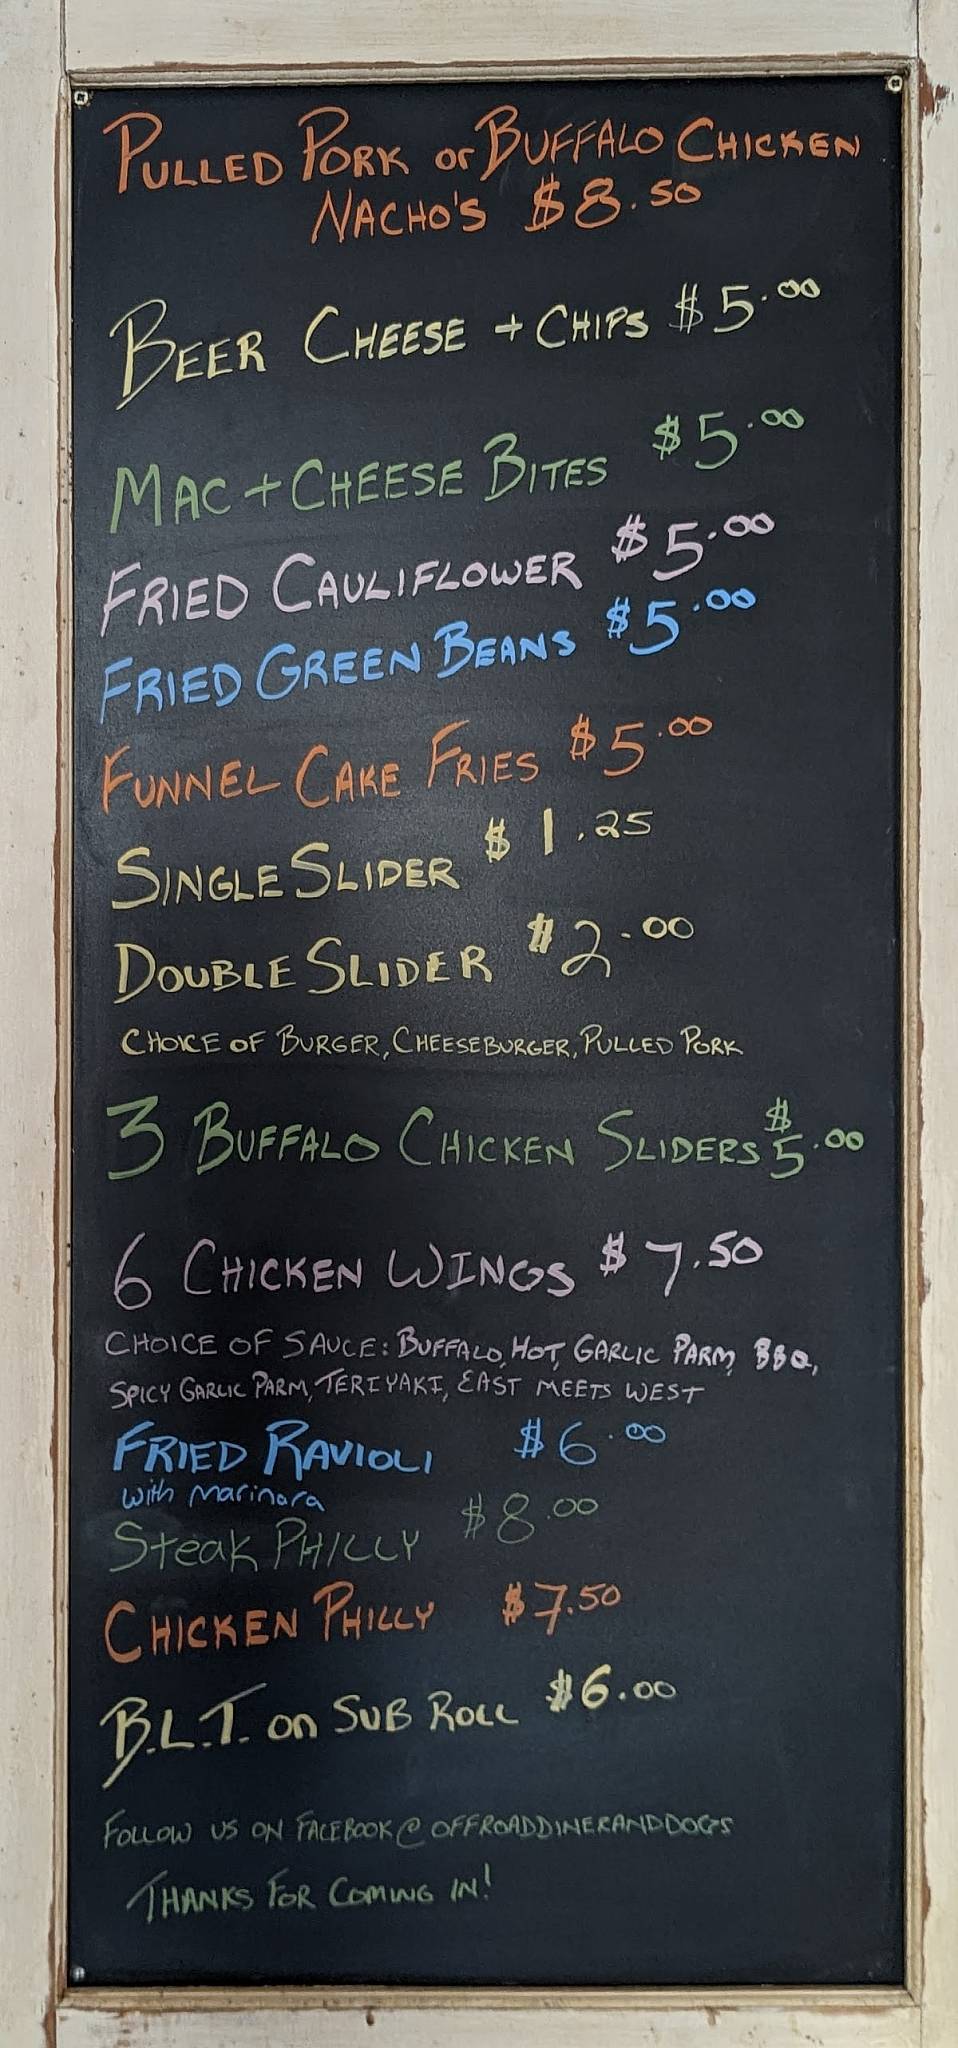 PULLED PORK or BUFFALO CHICKEN
NACHO'S $8.50
BEER CHEESE + CHIPS $5.00
MAC + CHEESE BITES $5.00
FRIED CAULIFLOWER $5.00
FRIED GREEN BEANS $5.00
FUNNEL CAKE FRIES $5.00
SINGLE SLIDER $1.25
DOUBLE SLIDER $2.00
CHOICE OF BURGER, CHEESEBURGER, PULLED PORK
3 BUFFALO CHICKEN SLIDERS $5.00
6 CHICKEN WINGS $7.50
CHOICE OF SAUCE: BUFFALO, HOT, GARLIC PARM, BBQ,
SPICY GARLIC PARM, TERIYAKI, EAST MEETS WEST
FRIED RAVIOLI $6.00
with Marinara
Steak PHILLY $8.00
CHICKEN PHILLY $7.50
B.L.T. on SUB ROLL $6.00
FOLLOW US ON FACEBOOK@OFFROADDINERANDDOGS
THANKS FOR COMING IN!